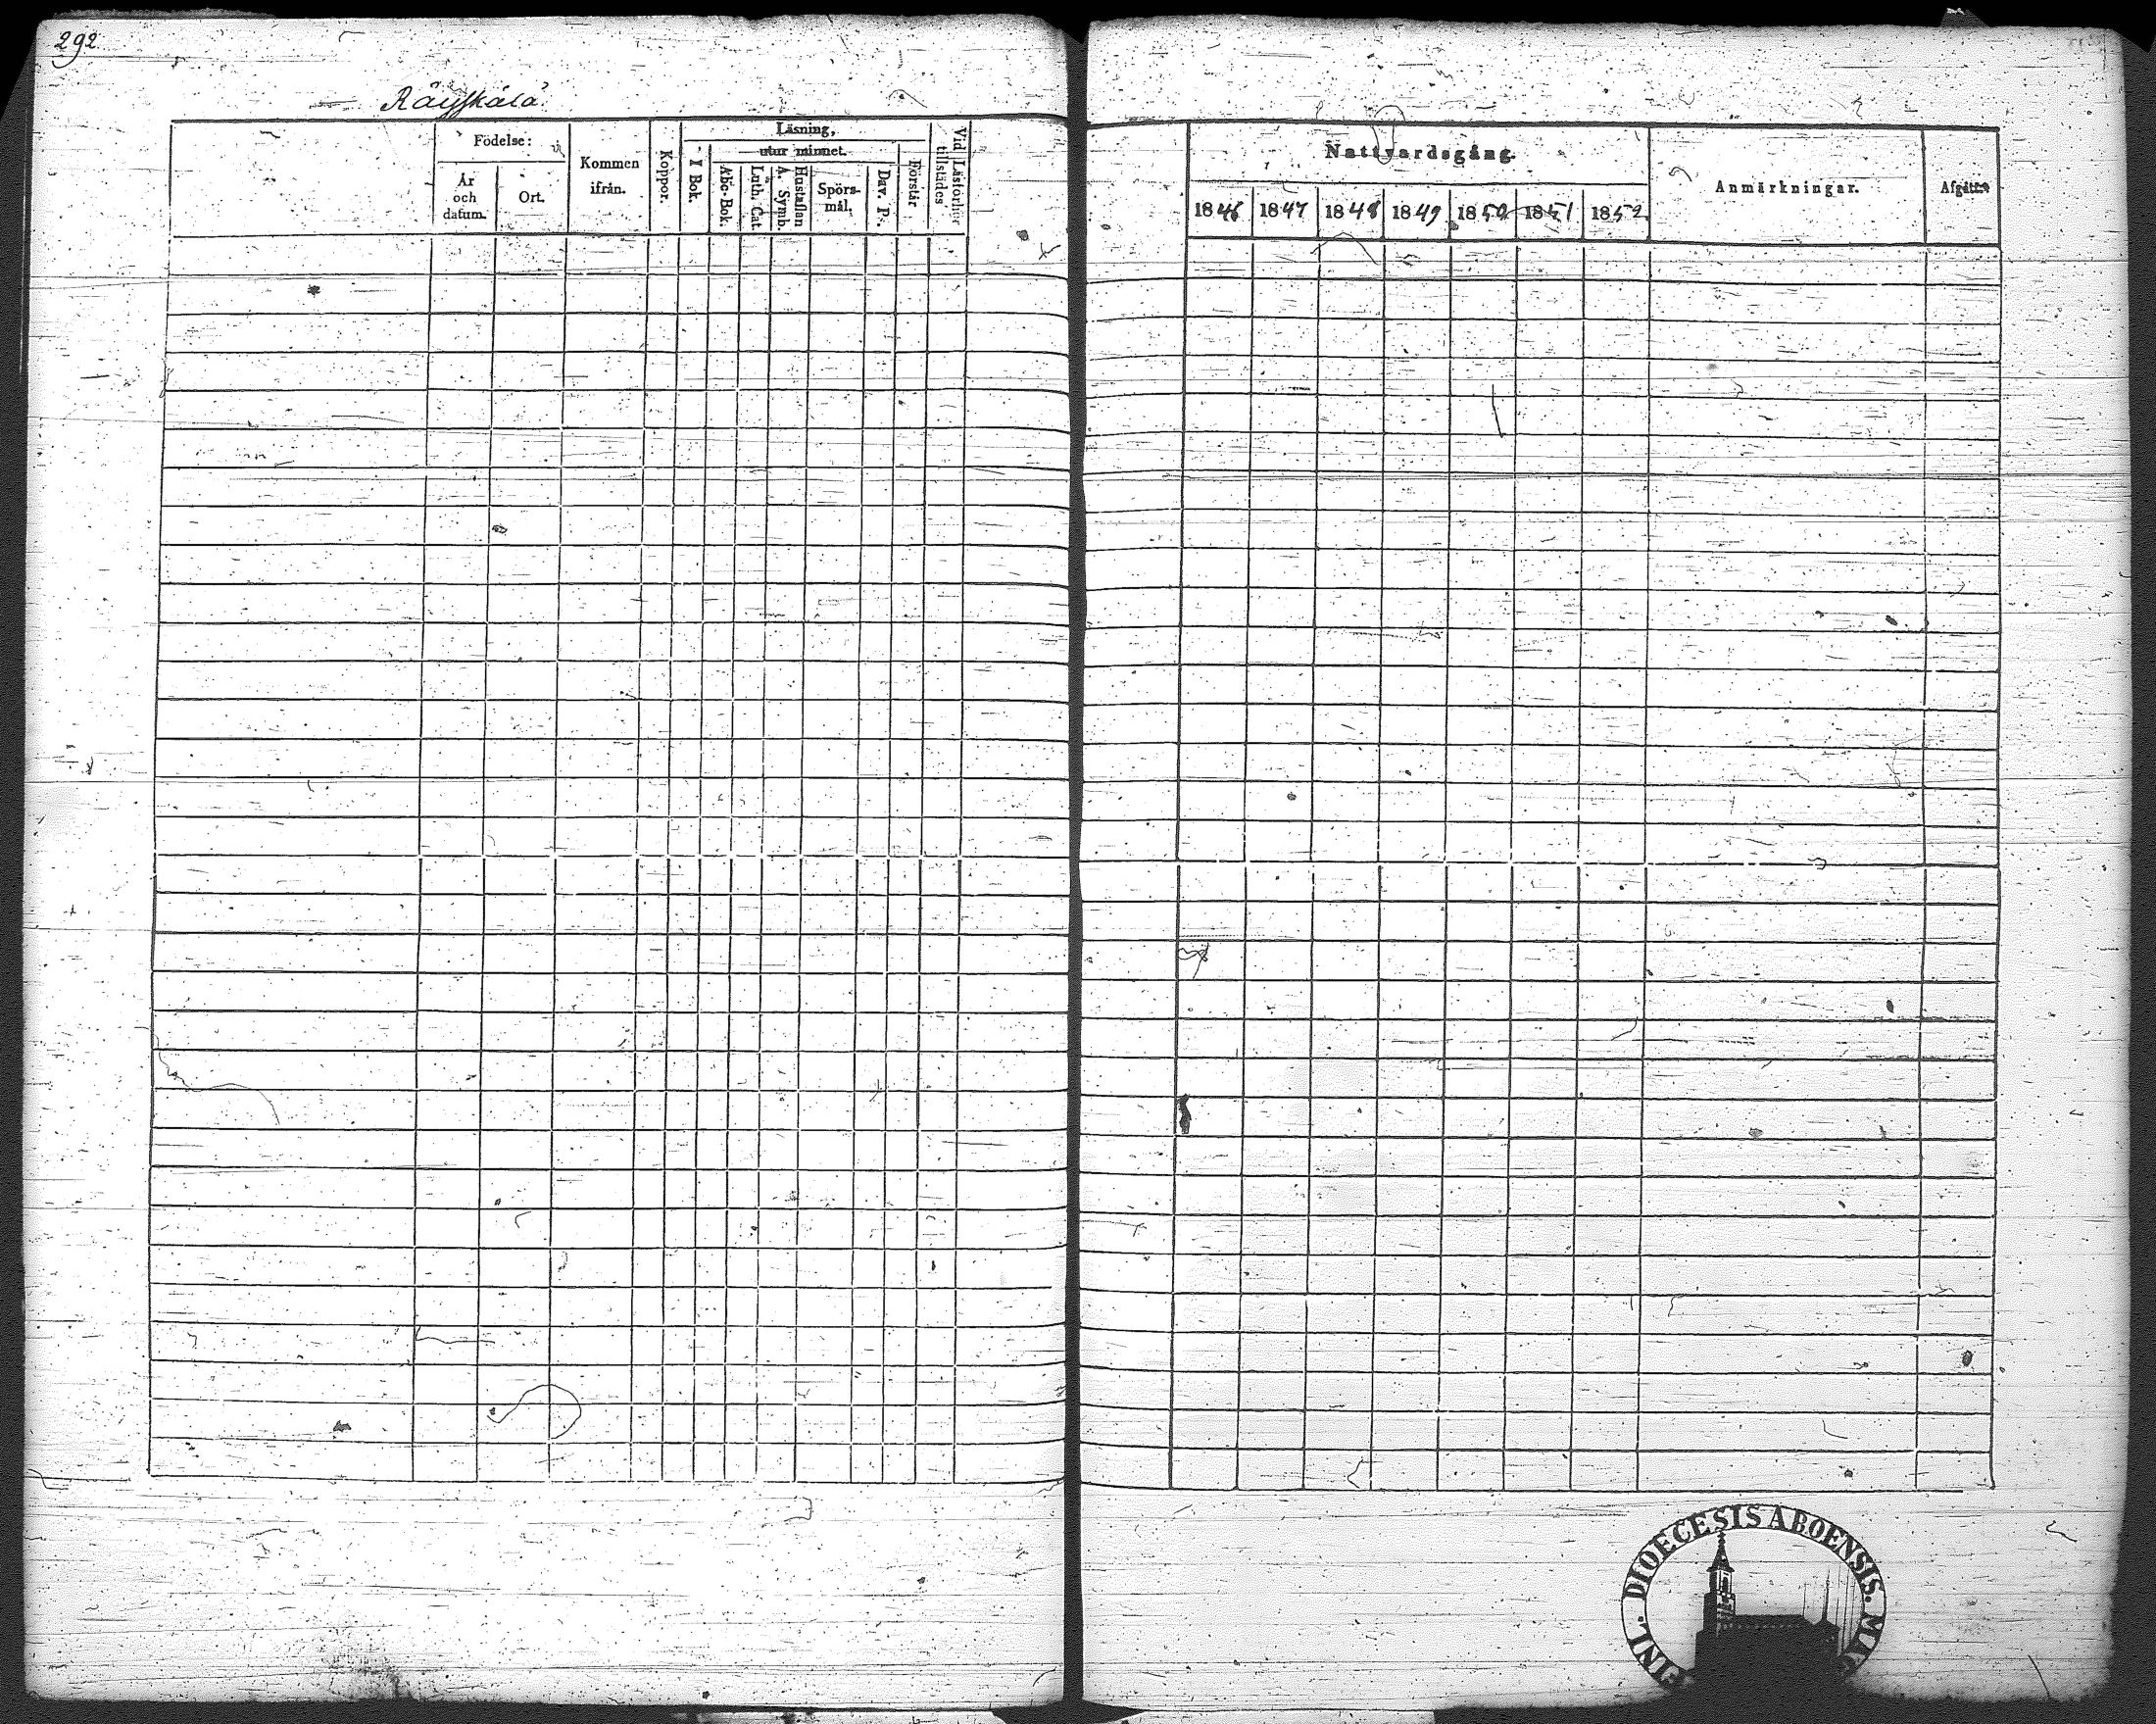 292
Räyskälä
Födelse:
År
och
datum.
Ort.
Kommen
ifrån.
Koppor.
Läsning,
utur minnet.
I Bok.
Abc-Bok.
Luth. Cat.
Hustaflan
A. Symb.
Spörs-
mål.
Dav. Ps.
Förstår
Vid Läsförhör
tillstädes
Nattvardsgång.
1846 1847 1848 1849 1850 1851 1852
Anmärkningar.
Afgått.
FINL. DIOECESIS ABOENSIS.